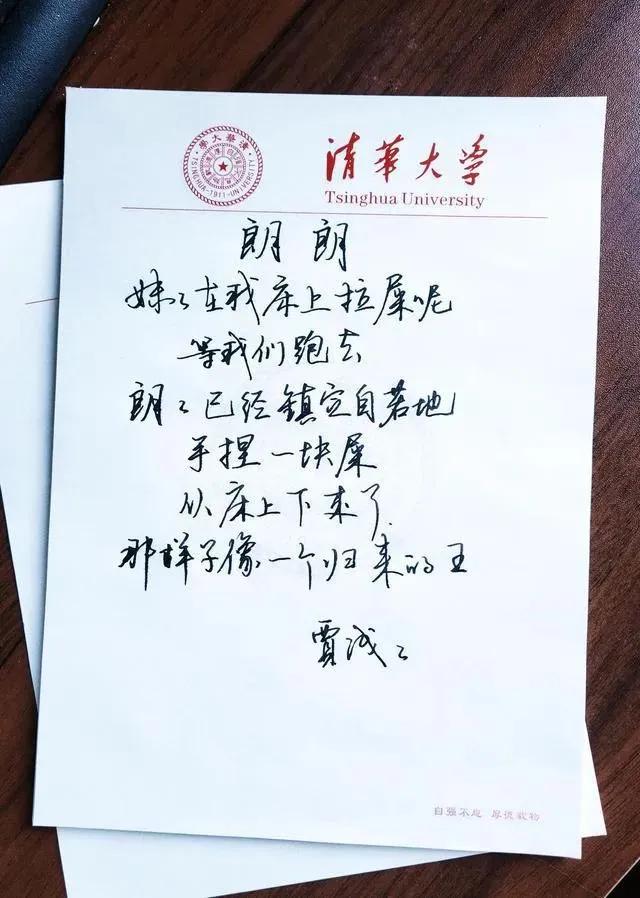 清華大學
TSINGHUA-1911-UNIVERSITY
清華大学
Tsinghua University
朗朗
妹〻在我床上拉屎呢
等我们跑去
朗〻已经镇定自若地
手捏一块屎
从床上下来了
那样子像一个归来的王
贾浅〻
自强不息 厚德载物